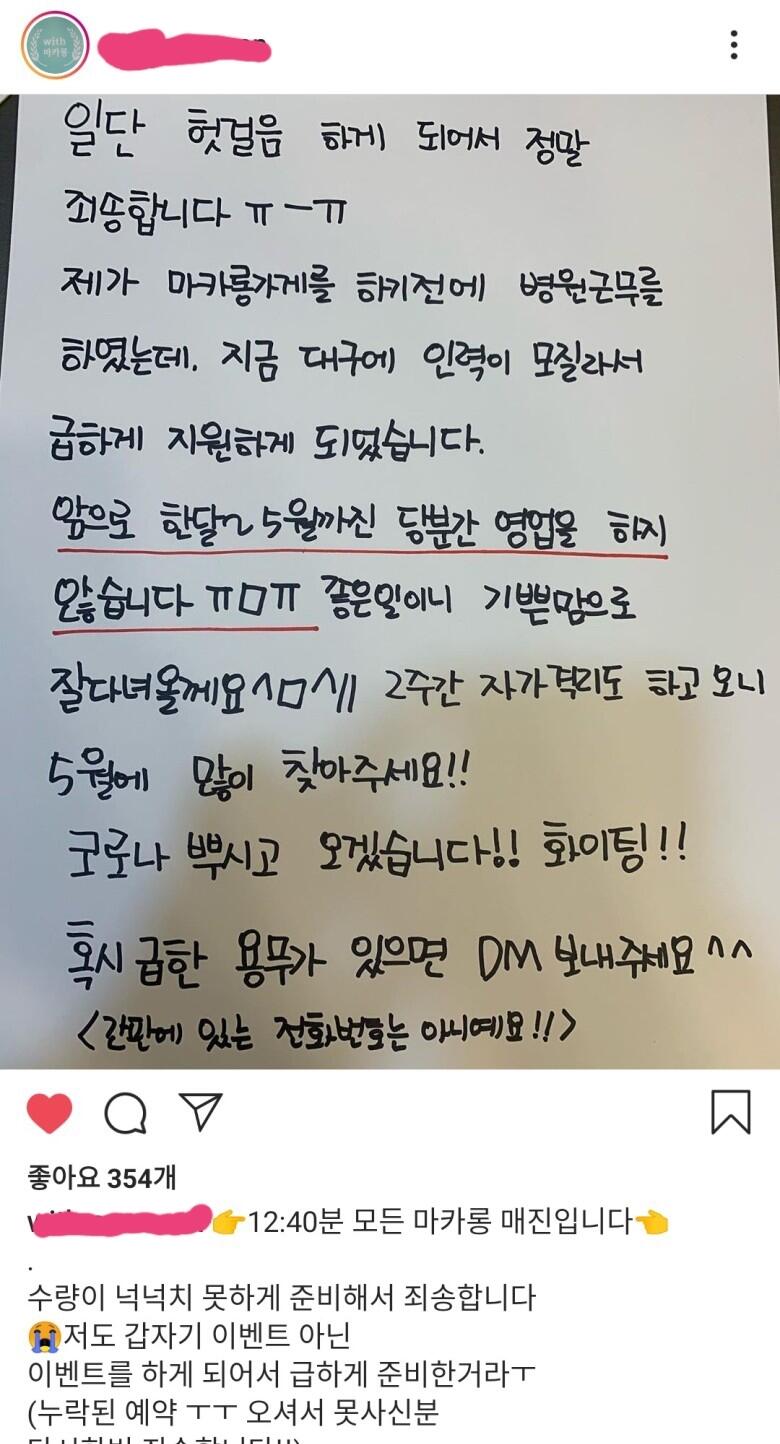 with
마카롱
일단 헛걸음 하게 되어서 정말
죄송합니다 ㅠㅡㅠ
제가 마카롱가게를 하기전에 병원근무를
하였는데. 지금 대구에 인력이 모질라서
급하게 지원하게 되었습니다.
앞으로 한달~5월까진 당분간 영업을 하지
않습니다 ㅠㅁㅠ 좋은일이니 기쁜맘으로
잘다녀올께요^ㅁ^// 2주간 자가격리도 하고오니
5월에 많이 찾아주세요!!
코로나 뿌시고 오겠습니다!! 화이팅!!
혹시 급한 용무가 있으면 DM 보내주세요^^
<간판에 있는 전화번호는 아니예요!!>
좋아요 354개
👉12:40분 모든 마카롱 매진입니다👈
.
수량이 넉넉치 못하게 준비해서 죄송합니다
😭저도 갑자기 이벤트 아닌
이벤트를 하게 되어서 급하게 준비한거라ㅜ
(누락된 예약 ㅜㅜ 오셔서 못사신분